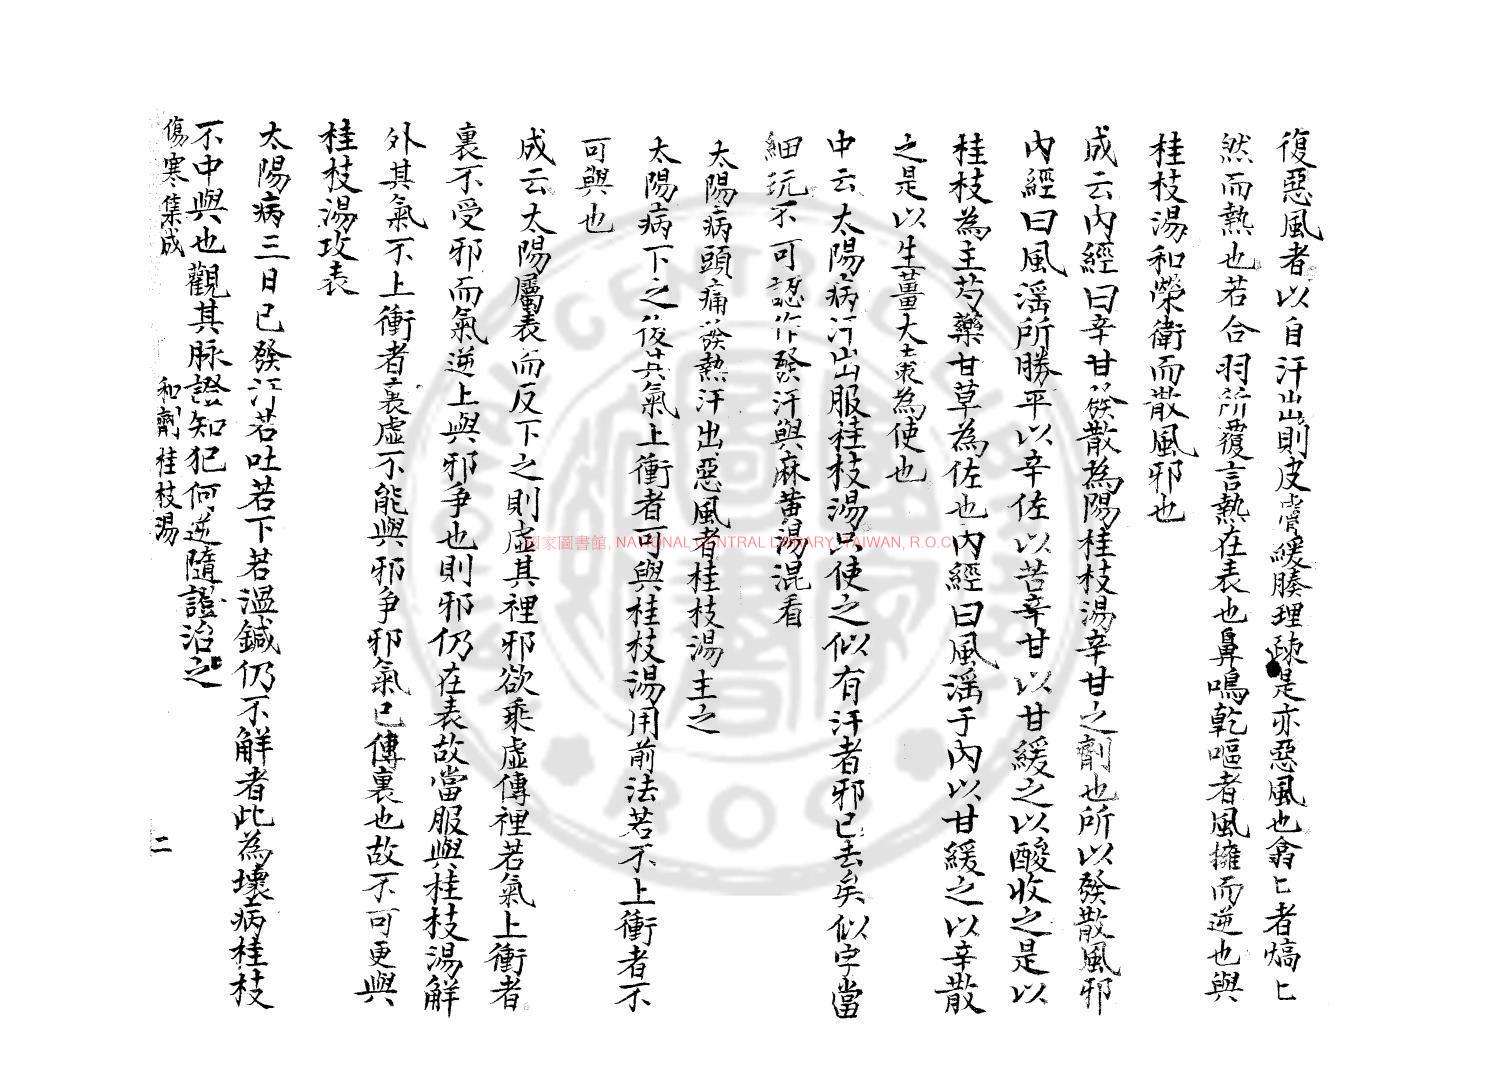 復惡風者以自汗出則皮膚緩腠理疎是亦惡風也翕〻者熇〻
然而熱也若合羽所覆言熱在表也鼻鳴乾嘔者風擁而逆也與
桂枝湯和榮衛而散風邪也
成云內經曰辛甘發散為陽桂枝湯辛甘之劑也所以發散風邪
內經曰風滛所勝平以辛佐以苦辛甘以甘緩之以酸收之是以
桂枝為主芍藥甘草為佐也內經曰風滛于內以甘緩之以辛散
之是以生薑大棗為使也
中云太陽病汗出服桂枝湯以使之似有汗者邪已去矣似字當
細玩不可認作發汗與麻黄湯混看
太陽病頭痛發熱汗出惡風者桂枝湯主之
太陽病下之後其氣上衝者可與桂枝湯用前法若不上衝者不
可與也
成云太陽屬表而反下之則虛其裡邪欲乘虛傳裡若氣上衝者
裏不受邪而氣逆上與邪爭也則邪仍在表故當服與桂枝湯解
外其氣不上衝者裏虛不能與邪爭邪氣已傳裏也故不可更與
桂枝湯攻表
太陽病三日已發汗若吐若下若溫鍼仍不解者此為壞病桂枝
不中與也觀其脉證知犯何逆隨證治之
傷寒集成 和劑桂枝湯 二
國家圖書館, NATIONAL CENTRAL LIBRARY, TAIWAN, R.O.C